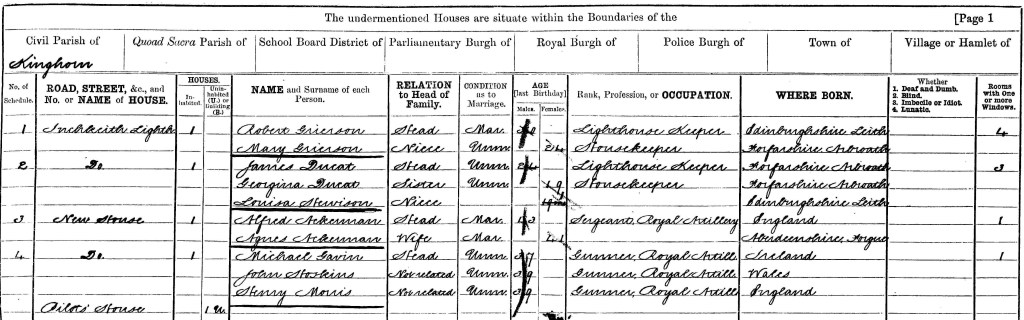 The undermentioned Houses are situate within the Boundaries of the [Page 1
Civil Parish of Quoad Sacra Parish of School Board District of Parliamentary Burgh of Royal Burgh of Police Burgh of Town of Village or Hamlet of
Kinghorn
No. of Schedule. ROAD, STREET, &c., and No. or NAME of HOUSE. HOUSES. In-habited. Unin-habited (U.) or Building (B.) NAME and Surname of each Person. RELATION to Head of Family. CONDITION as to Marriage. AGE [last Birthday] Males. Females. Rank, Profession, or OCCUPATION. WHERE BORN. Whether 1. Deaf and Dumb. 2. Blind. 3. Imbecile or Idiot. 4. Lunatic. Rooms with One or more Windows.
1 Inchkeith Lighth 1 Robert Grierson Head Mar. Lighthouse Keeper Edinburghshire Leith 4
Mary Grierson Niece Unm. 24 Housekeeper Forfarshire Arbroath
2 Do. 1 James Ducat Head Unm. 24 Lighthouse Keeper Forfarshire Arbroath 3
Georgina Ducat Sister Unm. 19 Housekeeper Forfarshire Arbroath
Louisa Niece Edinburghshire Leith
3 New House 1 Alfred Ackerman Head Mar. 43 Sergeant, Royal Artillery England 1
Agnes Ackerman Wife Mar. 41 Aberdeenshire,
4 Do. 1 Michael Gavin Head Unm. Gunner, Royal Artill Ireland 1
John Hoskins Not related Unm. 39 Gunner, Royal Artill Wales
Henry Morris Not related Unm. 39 Gunner, Royal Artill England
Pilots' House 1 U.